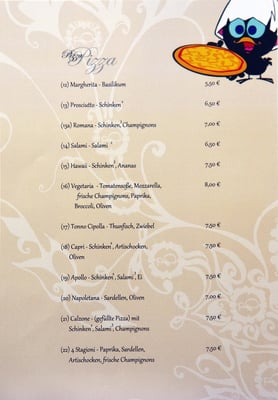 Pizza
(12) Margherita - Basilikum 5,50 €
(13) Prosciutto - Schinken 6,50 €
(13a) Romana - Schinken, Champignons 7,00 €
(14) Salami - Salami 6,50 €
(15) Hawaii - Schinken, Ananas 7,50 €
(16) Vegetaria - Tomatensoße, Mozzarella, 8,00 €
frische Champignons, Paprika,
Broccoli, Oliven
(17) Tonno Cipolla - Thunfisch, Zwiebel 7,50 €
(18) Capri - Schinken, Artischocken, 7,50 €
Oliven
(19) Apollo - Schinken, Salami, Ei 7,50 €
(20) Napoletana - Sardellen, Oliven 7,00 €
(21) Calzone - (gefüllte Pizza) mit 7,50 €
Schinken, Salami, Champignons
(22) 4 Stagioni - Paprika, Sardellen, 7,50 €
Artischocken, frische Champignons